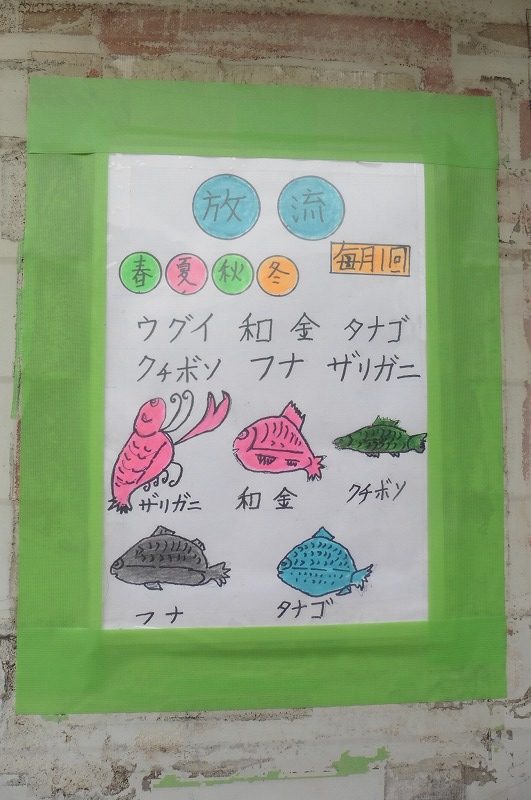 放流
春夏秋冬 毎月1回
ウグイ 和金 タナゴ
クチボソ フナ ザリガニ
ザリガニ 和金 クチボソ
フナ タナゴ